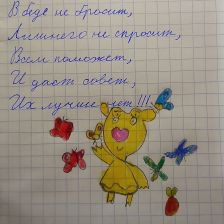 В беде не бросит,
Лишнего не спросит,
Всем поможет,
И даст совет,
Их лучше нет!!!